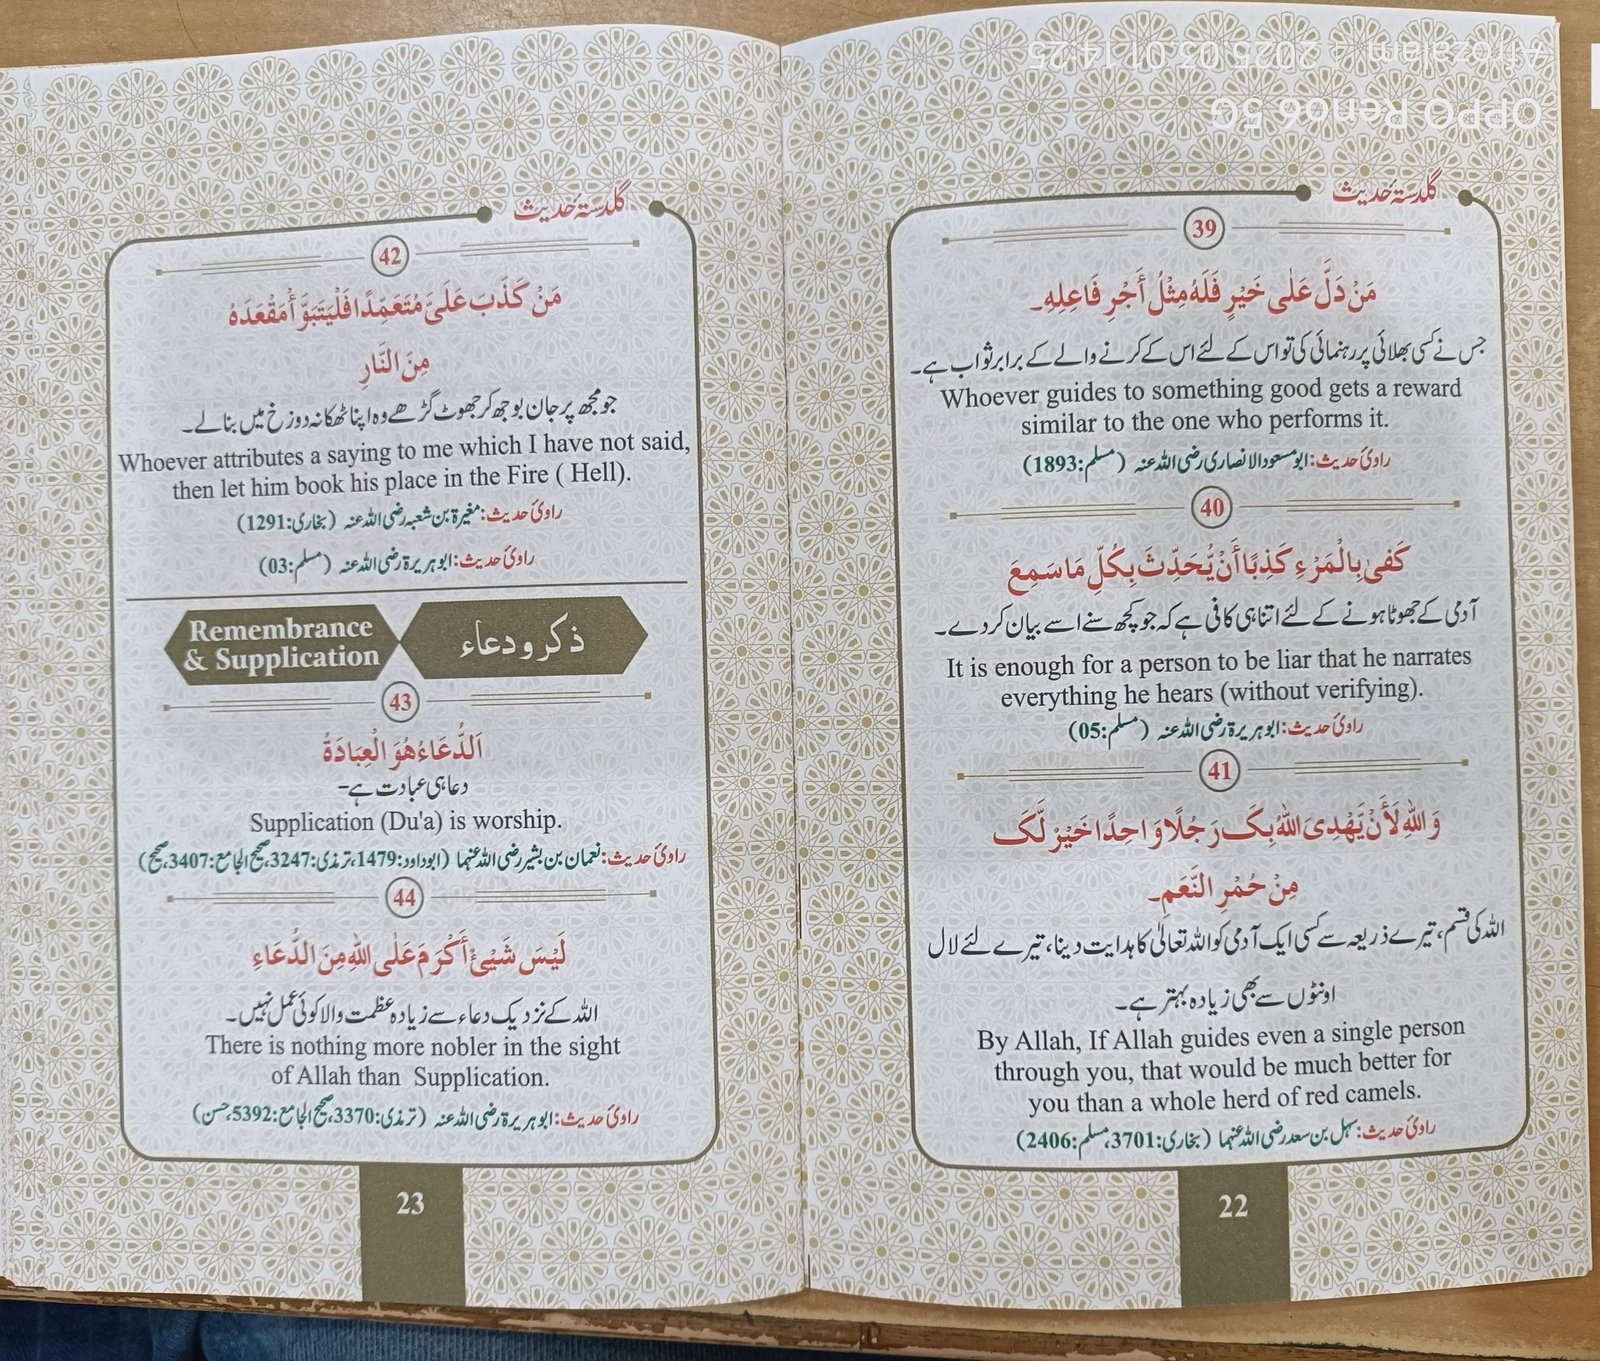 Afrozalam 2025.03.01 14:25
OPPO Reno6 5G
گلدستۂ حدیث
39
مَنْ دَلَّ عَلٰی خَيْرٍ فَلَهُ مِثْلُ أَجْرِ فَاعِلِهِ۔
جس نے کسی بھلائی پر رہنمائی کی تو اس کے لئے اس کے کرنے والے کے برابر ثواب ہے۔
Whoever guides to something good gets a reward
similar to the one who performs it.
راویٔ حدیث: ابو مسعود الانصاری رضی اللہ عنہ (مسلم:1893)
40
كَفىٰ بِالْمَرْءِ كَذِبًا أَنْ يُّحَدِّثَ بِكُلِّ مَا سَمِعَ
آدمی کے جھوٹا ہونے کے لئے اتنا ہی کافی ہے کہ جو کچھ سنے اسے بیان کر دے۔
It is enough for a person to be liar that he narrates
everything he hears (without verifying).
راویٔ حدیث: ابو ہریرۃ رضی اللہ عنہ (مسلم:05)
41
وَاللهِ لَأَنْ يَّهْدِیَ اللهُ بِکَ رَجُلًا وَاحِدًا خَيْرٌ لَّکَ
مِنْ حُمْرِ النَّعَمِ۔
اللہ کی قسم، تیرے ذریعہ سے کسی ایک آدمی کو اللہ تعالیٰ کا ہدایت دینا، تیرے لئے لال
اونٹوں سے بھی زیادہ بہتر ہے۔
By Allah, If Allah guides even a single person
through you, that would be much better for
you than a whole herd of red camels.
راویٔ حدیث: سہل بن سعد رضی اللہ عنہما (بخاری:3701، مسلم:2406)
22
گلدستۂ حدیث
42
مَنْ كَذَبَ عَلَیَّ مُتَعَمِّدًا فَلْيَتَبَوَّأْ مَقْعَدَهُ
مِنَ النَّارِ
جو مجھ پر جان بوجھ کر جھوٹ گڑھے وہ اپنا ٹھکانہ دوزخ میں بنالے۔
Whoever attributes a saying to me which I have not said,
then let him book his place in the Fire ( Hell).
راویٔ حدیث: مغیرۃ بن شعبہ رضی اللہ عنہ (بخاری:1291)
راویٔ حدیث: ابو ہریرۃ رضی اللہ عنہ (مسلم:03)
ذکر و دعاء
Remembrance
& Supplication
43
اَلدُّعَاءُ هُوَ الْعِبَادَةُ
دعا ہی عبادت ہے-
Supplication (Du'a) is worship.
راویٔ حدیث: نعمان بن بشیر رضی اللہ عنہما (ابوداود:1479، ترمذی:3247، صحیح الجامع:3407، صحیح)
44
لَيْسَ شَيْئٌ أَكْرَمَ عَلَی اللهِ مِنَ الدُّعَاءِ
اللہ کے نزدیک دعاء سے زیادہ عظمت والا کوئی عمل نہیں۔
There is nothing more nobler in the sight
of Allah than Supplication.
راویٔ حدیث: ابو ہریرۃ رضی اللہ عنہ (ترمذی:3370، صحیح الجامع:5392، حسن)
23